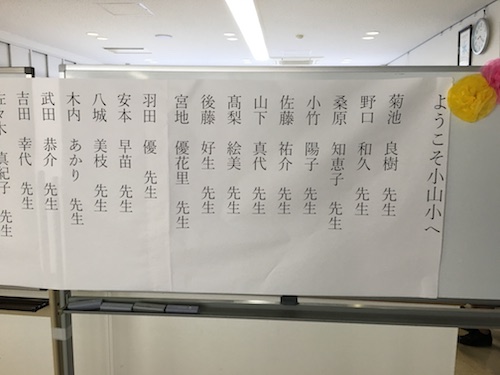 ようこそ小山小へ
菊池 良樹 先生
野口 和久 先生
桑原 知恵子 先生
小竹 陽子 先生
佐藤 祐介 先生
山下 真代 先生
髙梨 絵美 先生
後藤 好生 先生
宮地 優花里 先生
羽田 優 先生
安本 早苗 先生
八城 美枝 先生
木内 あかり 先生
武田 恭介 先生
吉田 幸代 先生
佐々木 真紀子 先生